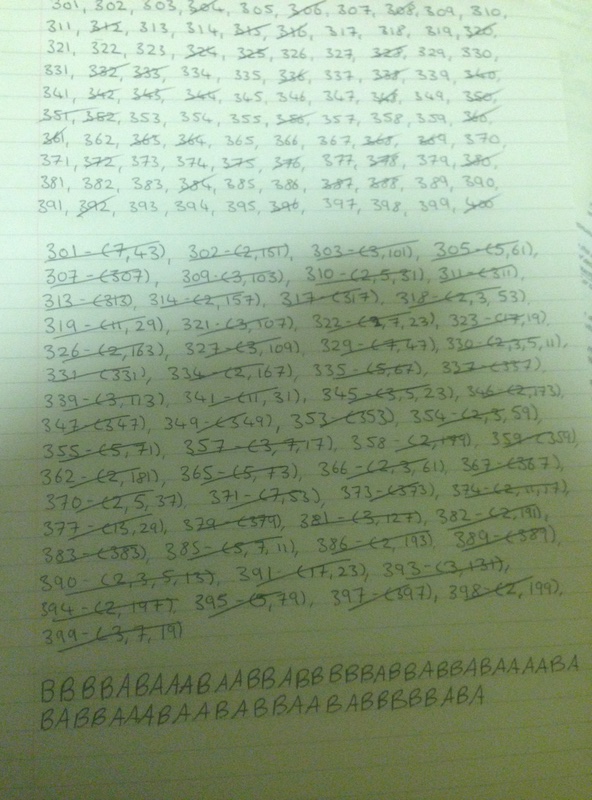 301, 302, 303, 304, 305, 306, 307, 308, 309, 310,
311, 312, 313, 314, 315, 316, 317, 318, 319, 320,
321, 322, 323, 324, 325, 326, 327, 328, 329, 330,
331, 332, 333, 334, 335, 336, 337, 338, 339, 340,
341, 342, 343, 344, 345, 346, 347, 348, 349, 350,
351, 352, 353, 354, 355, 356, 357, 358, 359, 360,
361, 362, 363, 364, 365, 366, 367, 368, 369, 370
371, 372, 373, 374, 375, 376, 377, 378, 379, 380,
381, 382, 383, 384, 385, 386, 387, 388, 389, 390,
391, 392, 393, 394, 395, 396, 397, 398, 399, 400
301-(7,43), 302-(2,151), 303-(3,101), 305-(5,61),
307-(307), 309-(3,103), 310-(2,5,31), 311-(311),
313-(313), 314-(2,157), 317-(317), 318-(2,3,53),
319-(11,29), 321-(3,107), 322-(2,7,23), 323-(17,19)
326-(2,163), 327-(3,109), 329-(7,47), 330-(2,3,5,11),
331-(331), 334-(2,167), 335-(5,67), 337-(337)
339-(3,113), 341-(11,31), 345-(3,5,23), 346-(2,173)
347-(347), 349-(349), 353-(353), 354-(2,3,59),
355-(5,71), 357-(3,7,17), 358-(2,179), 359-(359)
362-(2,181), 365-(5,73), 366-(2,3,61), 367-(367)
370-(2,5,37), 371-(7,53), 373-(373), 374-(2,11,17),
377-(13,29), 379-(379), 381-(3,127), 382-(2,191),
383-(383), 385-(5,7,11), 386-(2,193), 389-(389),
390-(2,3,5,13), 391-(17,23), 393-(3,131),
394-(2,197), 395-(5,79), 397-(397), 398-(2,199),
399-(3,7,19)
BBBBABAAABAABBABBBBBABBABBABAAAABA
BABBAAABAABABBAABABBBBBABA